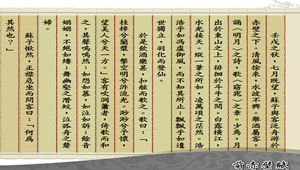 壬戌之秋，七月既望，蘇子與客泛舟游於
赤壁之下。清風徐來，水波不興。舉酒屬客，
誦〈明月〉之詩，歌〈窈窕〉之章。少焉，月
出於東山之上，徘徊於斗牛之間。白露橫江，
水光接天。縱一葦之所如，凌萬頃之茫然。浩
浩乎如馮虛御風，而不知其所止；飄飄乎如遺
世獨立，羽化而登仙。
於是飲酒樂甚，扣舷而歌之。歌曰：「
桂棹兮蘭槳，擊空明兮泝流光。渺渺兮予懷，
望美人兮天一方。」客有吹洞簫者，倚歌而和
之，其聲嗚嗚然：如怨如慕，如泣如訴；餘音
嫋嫋，不絕如縷；舞幽壑之潛蛟，泣孤舟之嫠
婦。
蘇子愀然，正襟危坐而問客曰：「何為
其然也？」
前赤壁賦